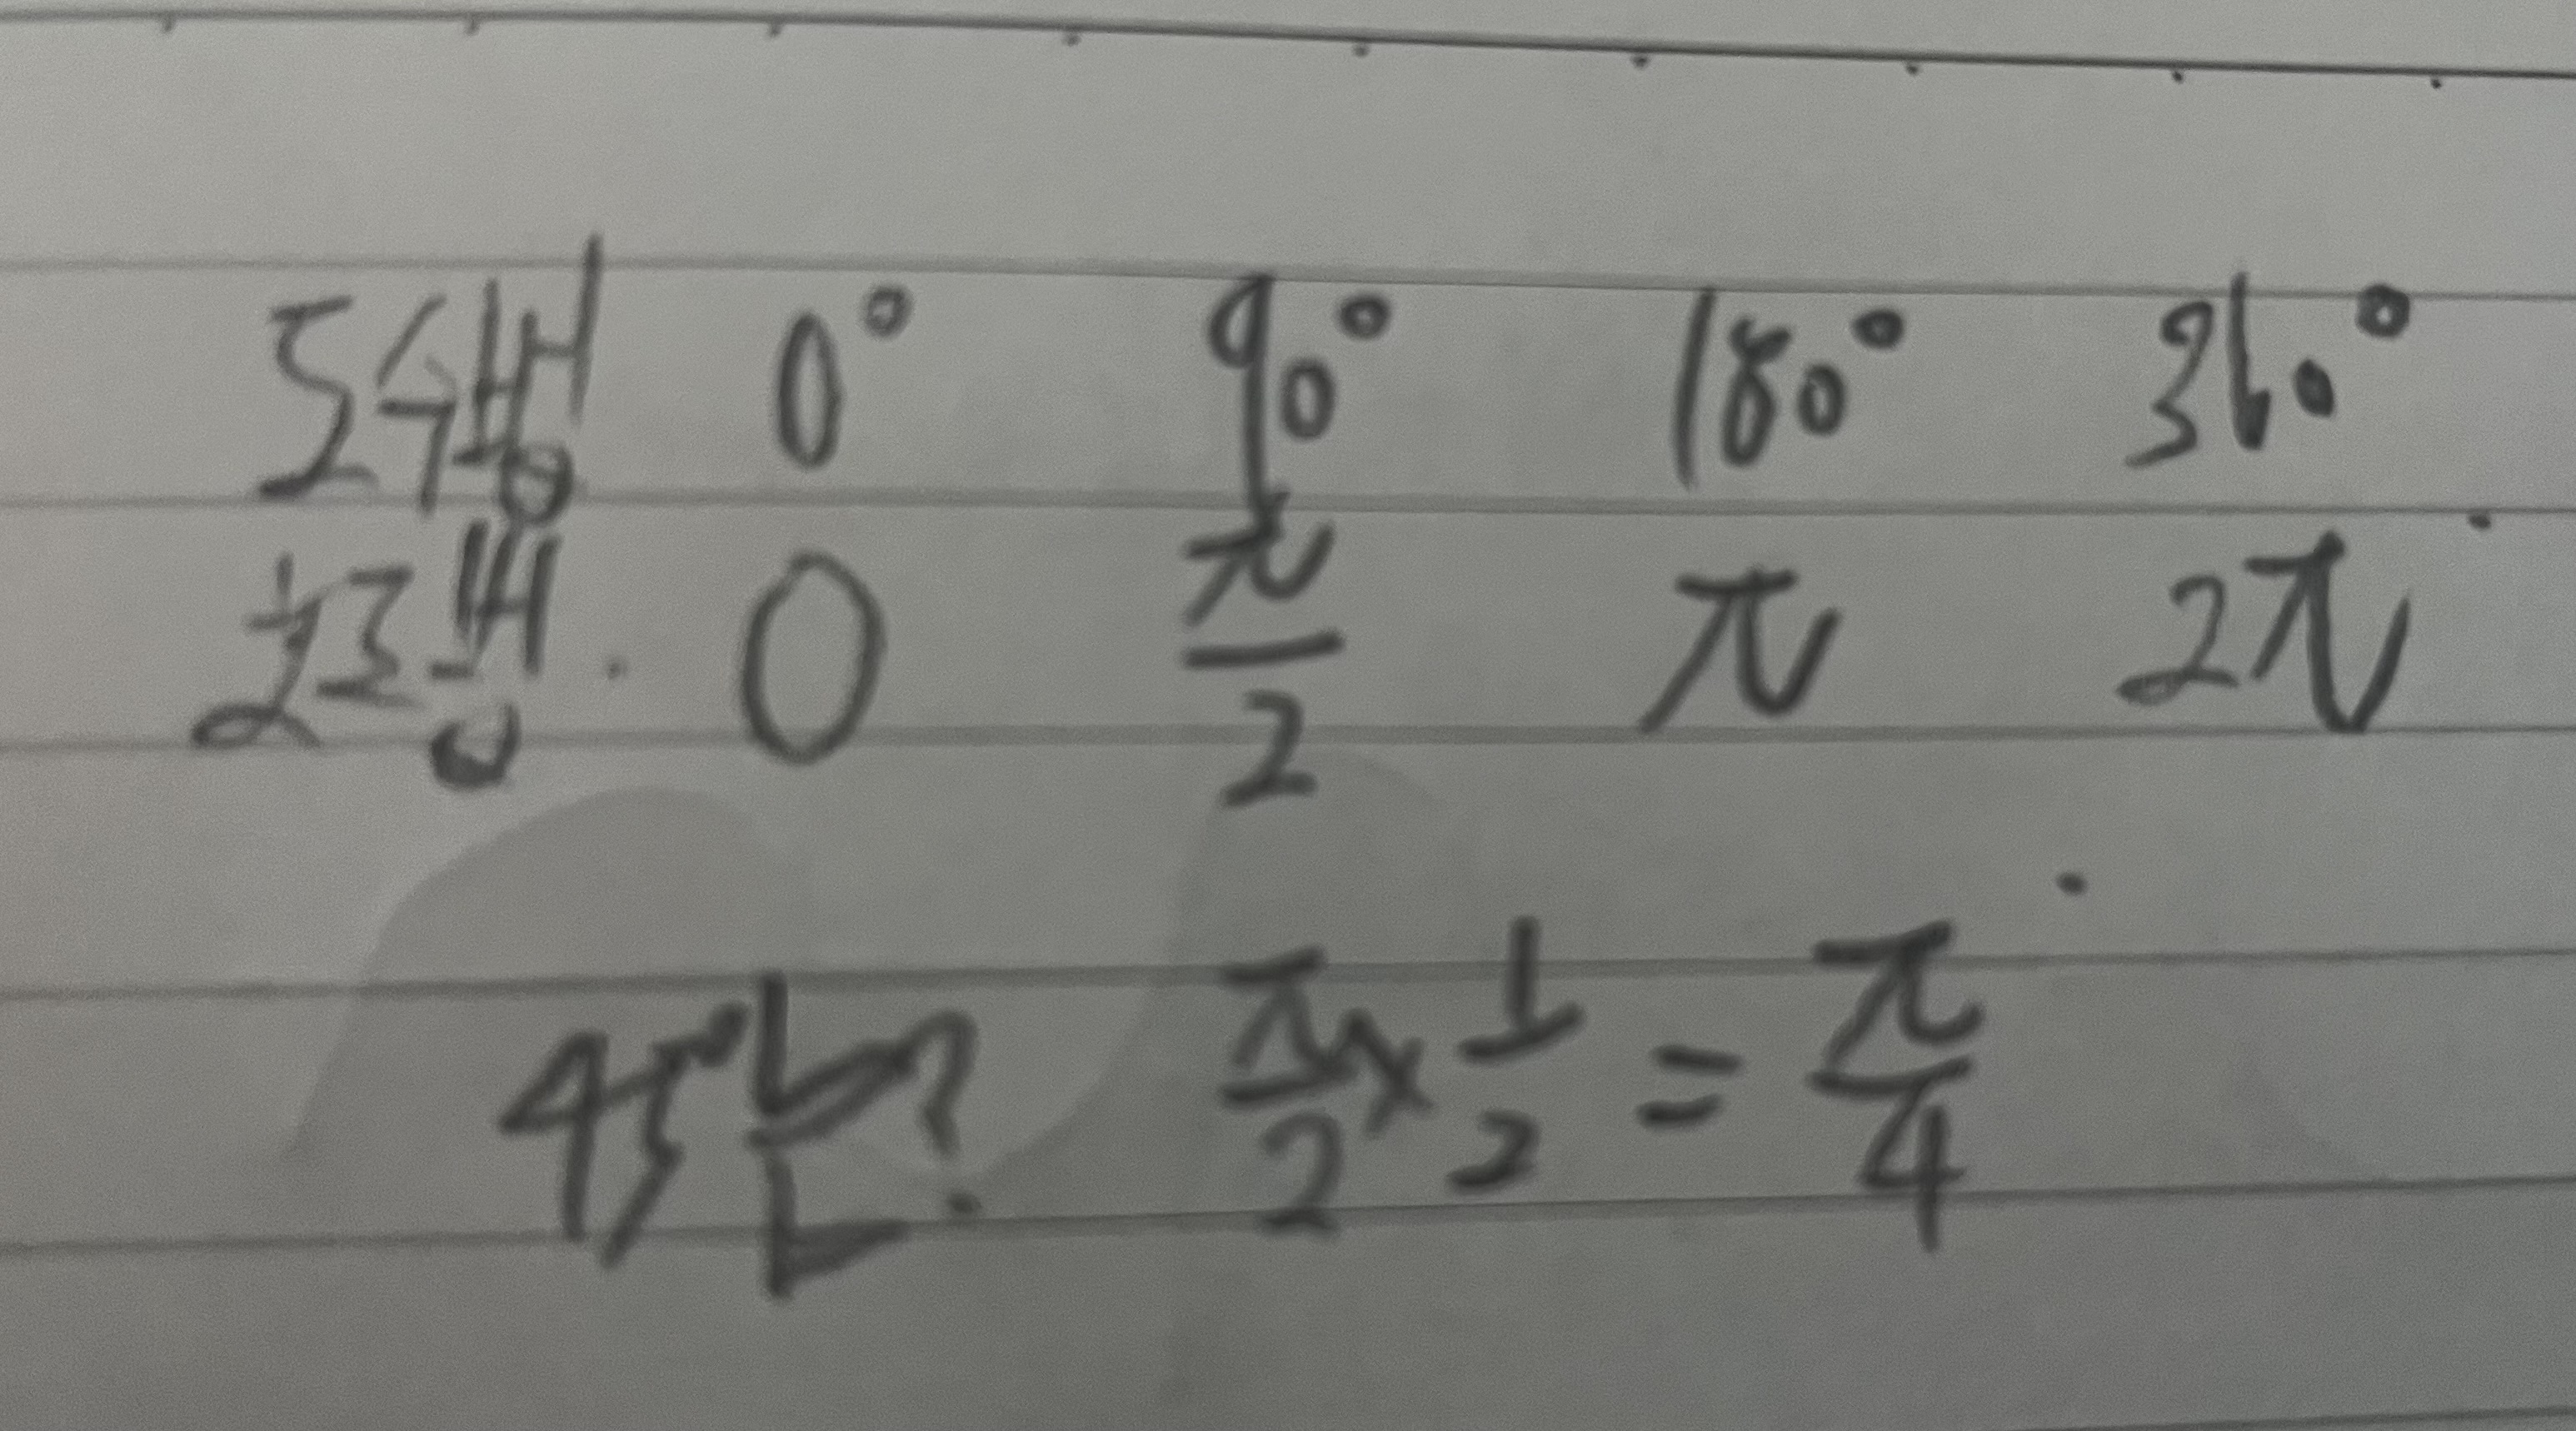 도수법 0° 90° 180° 360°
호도법 0 π/2 π 2π
45°는? π/2 × 1/2 = π/4